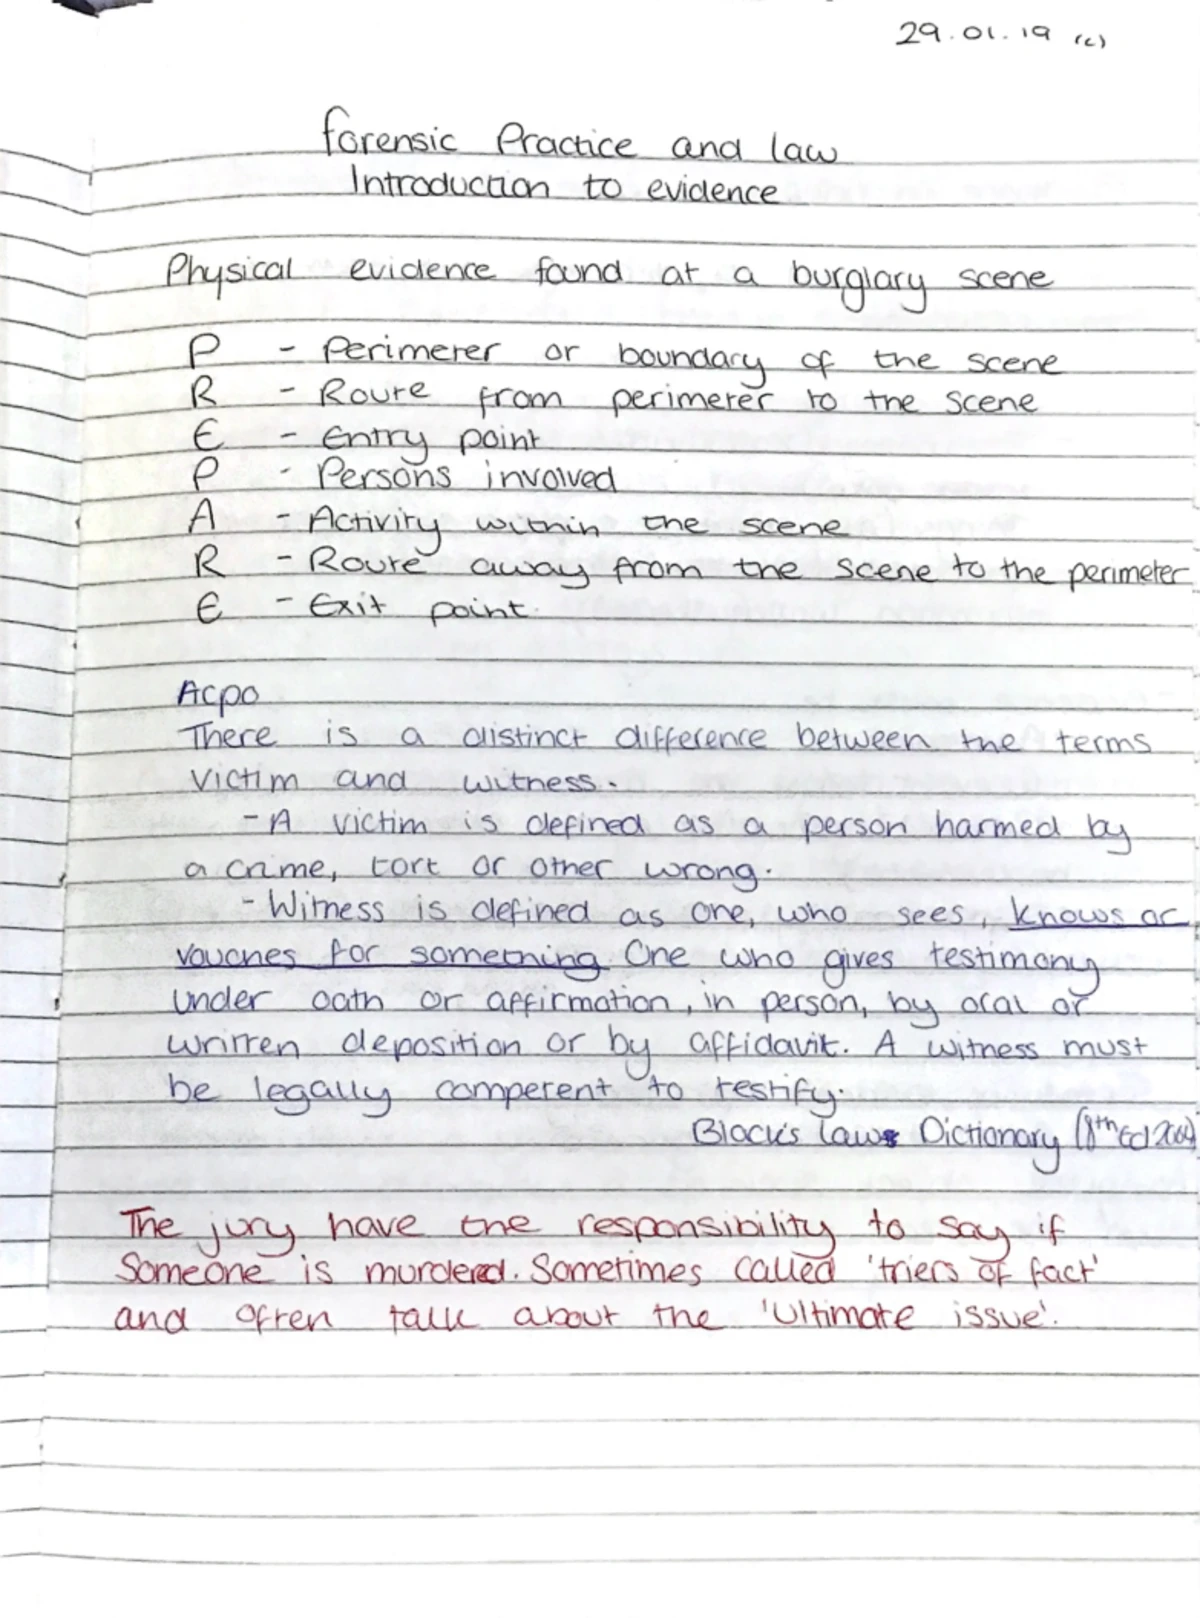 29.01.19 (c)
Forensic Practice and law
Introduction to evidence
Physical evidence found at a burglary scene
P - Perimeter or boundary of the scene
R - Route from perimeter to the scene
E - Entry point
P - Persons involved
A - Activity within the scene
R - Route away from the scene to the perimeter
E - Exit point.
Acpo
There is a distinct difference between the terms
victim and witness.
- A victim is defined as a person harmed by
a crime, tort or other wrong.
- Witness is defined as one, who sees, knows or
vouches for something. One who gives testimony
under oath or affirmation, in person, by oral or
written deposition or by affidavit. A witness must
be legally competent to testify.
Black's Laws Dictionary (8th Ed 2004)
The jury have the responsibility to say if
Someone is murdered. Sometimes called 'triers of fact'
and often talk about the 'Ultimate issue'.